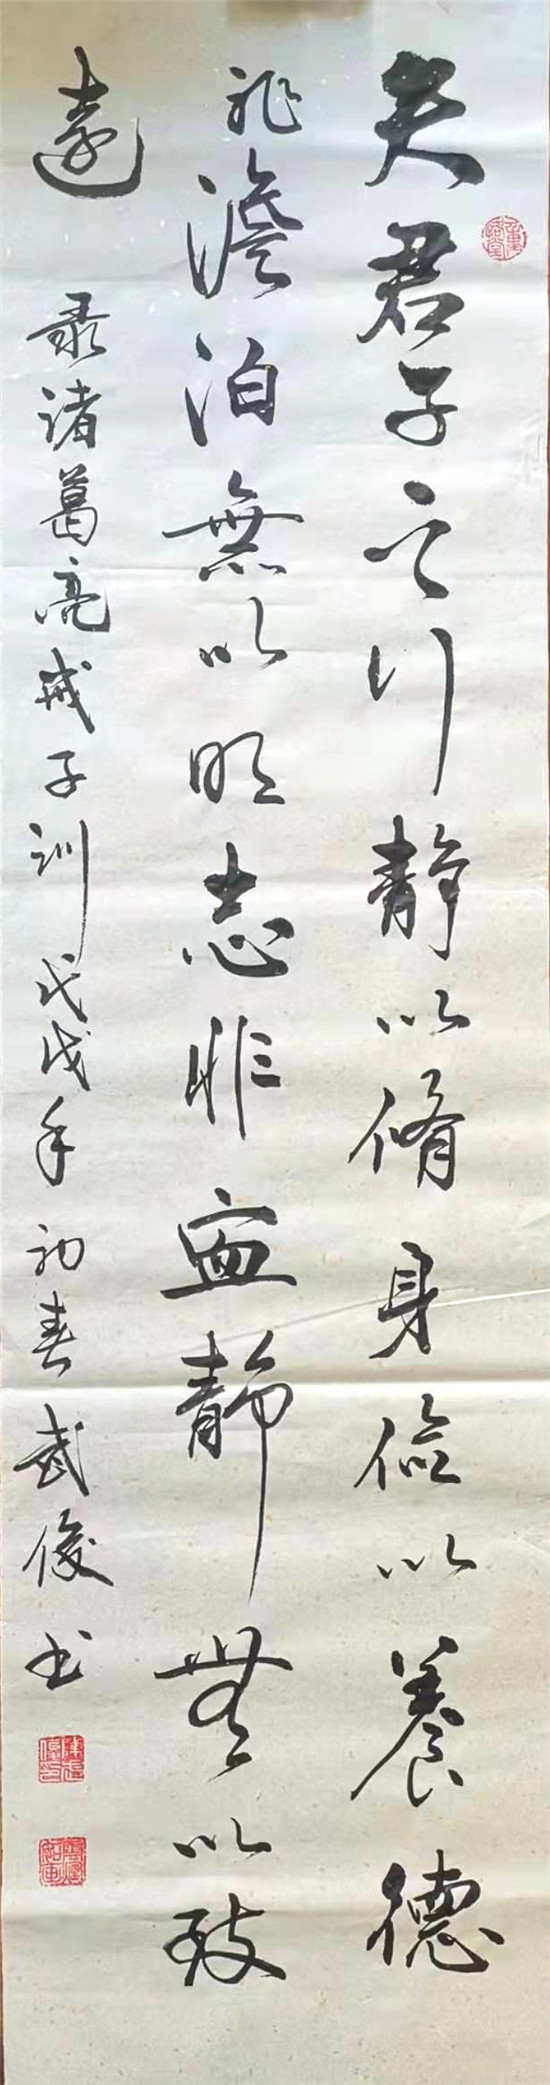 夫君子之行靜以脩身儉以養德
非澹泊無以明志非寍靜無以致
遠
录诸葛亮戒子训戊戌年初春武俊书